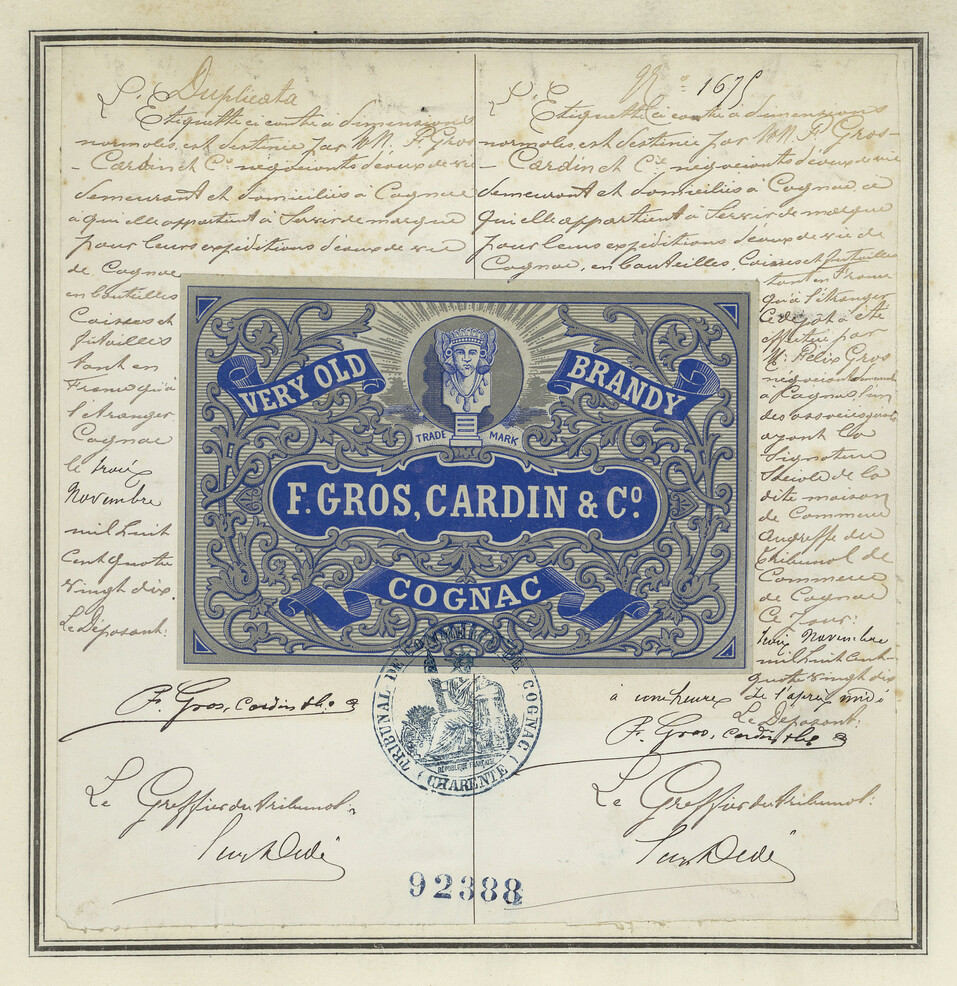 Duplicata
L'Etiquette ci contre à dimensions
normales, est destinée par MM. F. Gros
- Cardin et Cie négociants d'eaux de vie
demeurant et domiciliés à Cognac
à qui elle appartient à Servir de marque
pour leurs expéditions d'eaux de vie
de Cognac
en bouteilles
Caisses et
futailles
tant en
France qu'à
l'étranger
Cognac
le trois
Novembre
mil huit
cent quatre
vingt dix.
Le Déposant:
F. Gros, Cardin & Co
Le Greffier du tribunal:
No 1675
L'Etiquette ci contre à dimensions
normales, est destinée par MM. F. Gros-
- Cardin et Cie négociants d'eaux de vie
demeurant et domiciliés à Cognac à
qui elle appartient à Servir de marque
pour leurs expéditions d'eaux de vie de
Cognac, en bouteilles, Caisses et futailles
tant en France
qu'à l'étranger
Ce dépôt a été
effectué par
Mr. Félix Gros
négociant demeurant
à
des associés
ayant la
Signature
Sociale de la
dite maison
de Commerce
au greffe du
tribunal de
Commerce
de Cognac
Ce Jour:
trois Novembre
mil huit cent
quatre vingt dix
à une heure de l'après midi
Le Déposant:
F. Gros, Cardin & Co
Le Greffier du tribunal:
VERY OLD
BRANDY
TRADE MARK
F. GROS, CARDIN & Co.
COGNAC
TRIBUNAL DE COMMERCE DE COGNAC
RÉPUBLIQUE FRANÇAISE
(CHARENTE)
92388